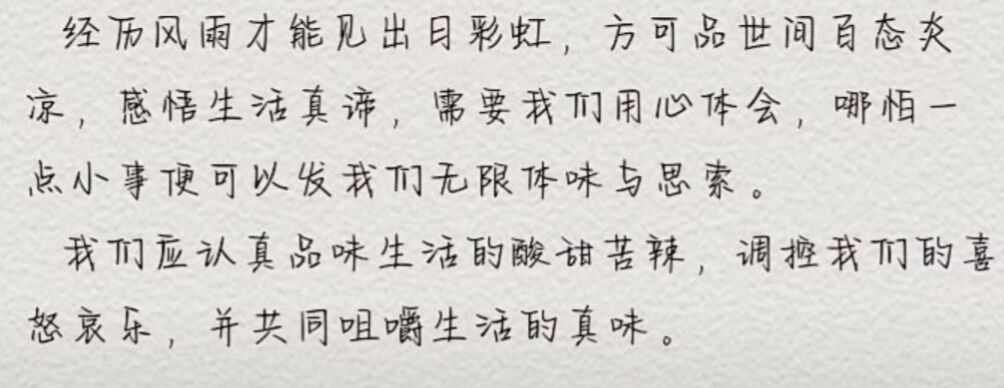 经历风雨才能见出日彩虹，方可品世间百态炎
凉，感悟生活真谛，需要我们用心体会，哪怕一
点小事便可以发我们无限体味与思索。
我们应认真品味生活的酸甜苦辣，调控我们的喜
怒哀乐，并共同咀嚼生活的真味。